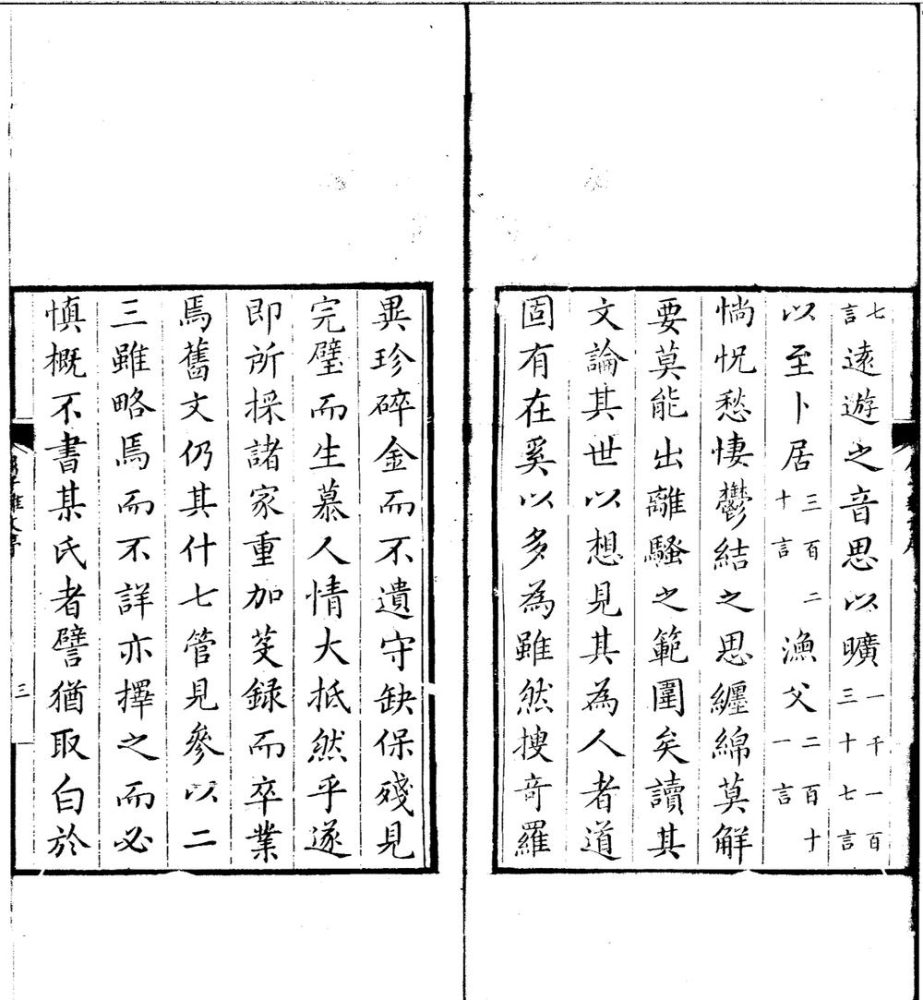 七言遠遊之音思以曠一千一百三十七言
以至卜居三百二十言漁父二百十一言
惝怳愁悽鬱結之思纒綿莫解
要莫能出離騷之範圍矣讀其
文論其世以想見其為人者道
固有在奚以多為雖然搜奇羅
異珍碎金而不遺守缺保殘見
完璧而生慕人情大抵然乎遂
即所採諸家重加芟録而卒業
焉舊文仍其什七管見參以二
三雖略焉而不詳亦擇之而必
慎概不書某氏者譬猶取白於
三